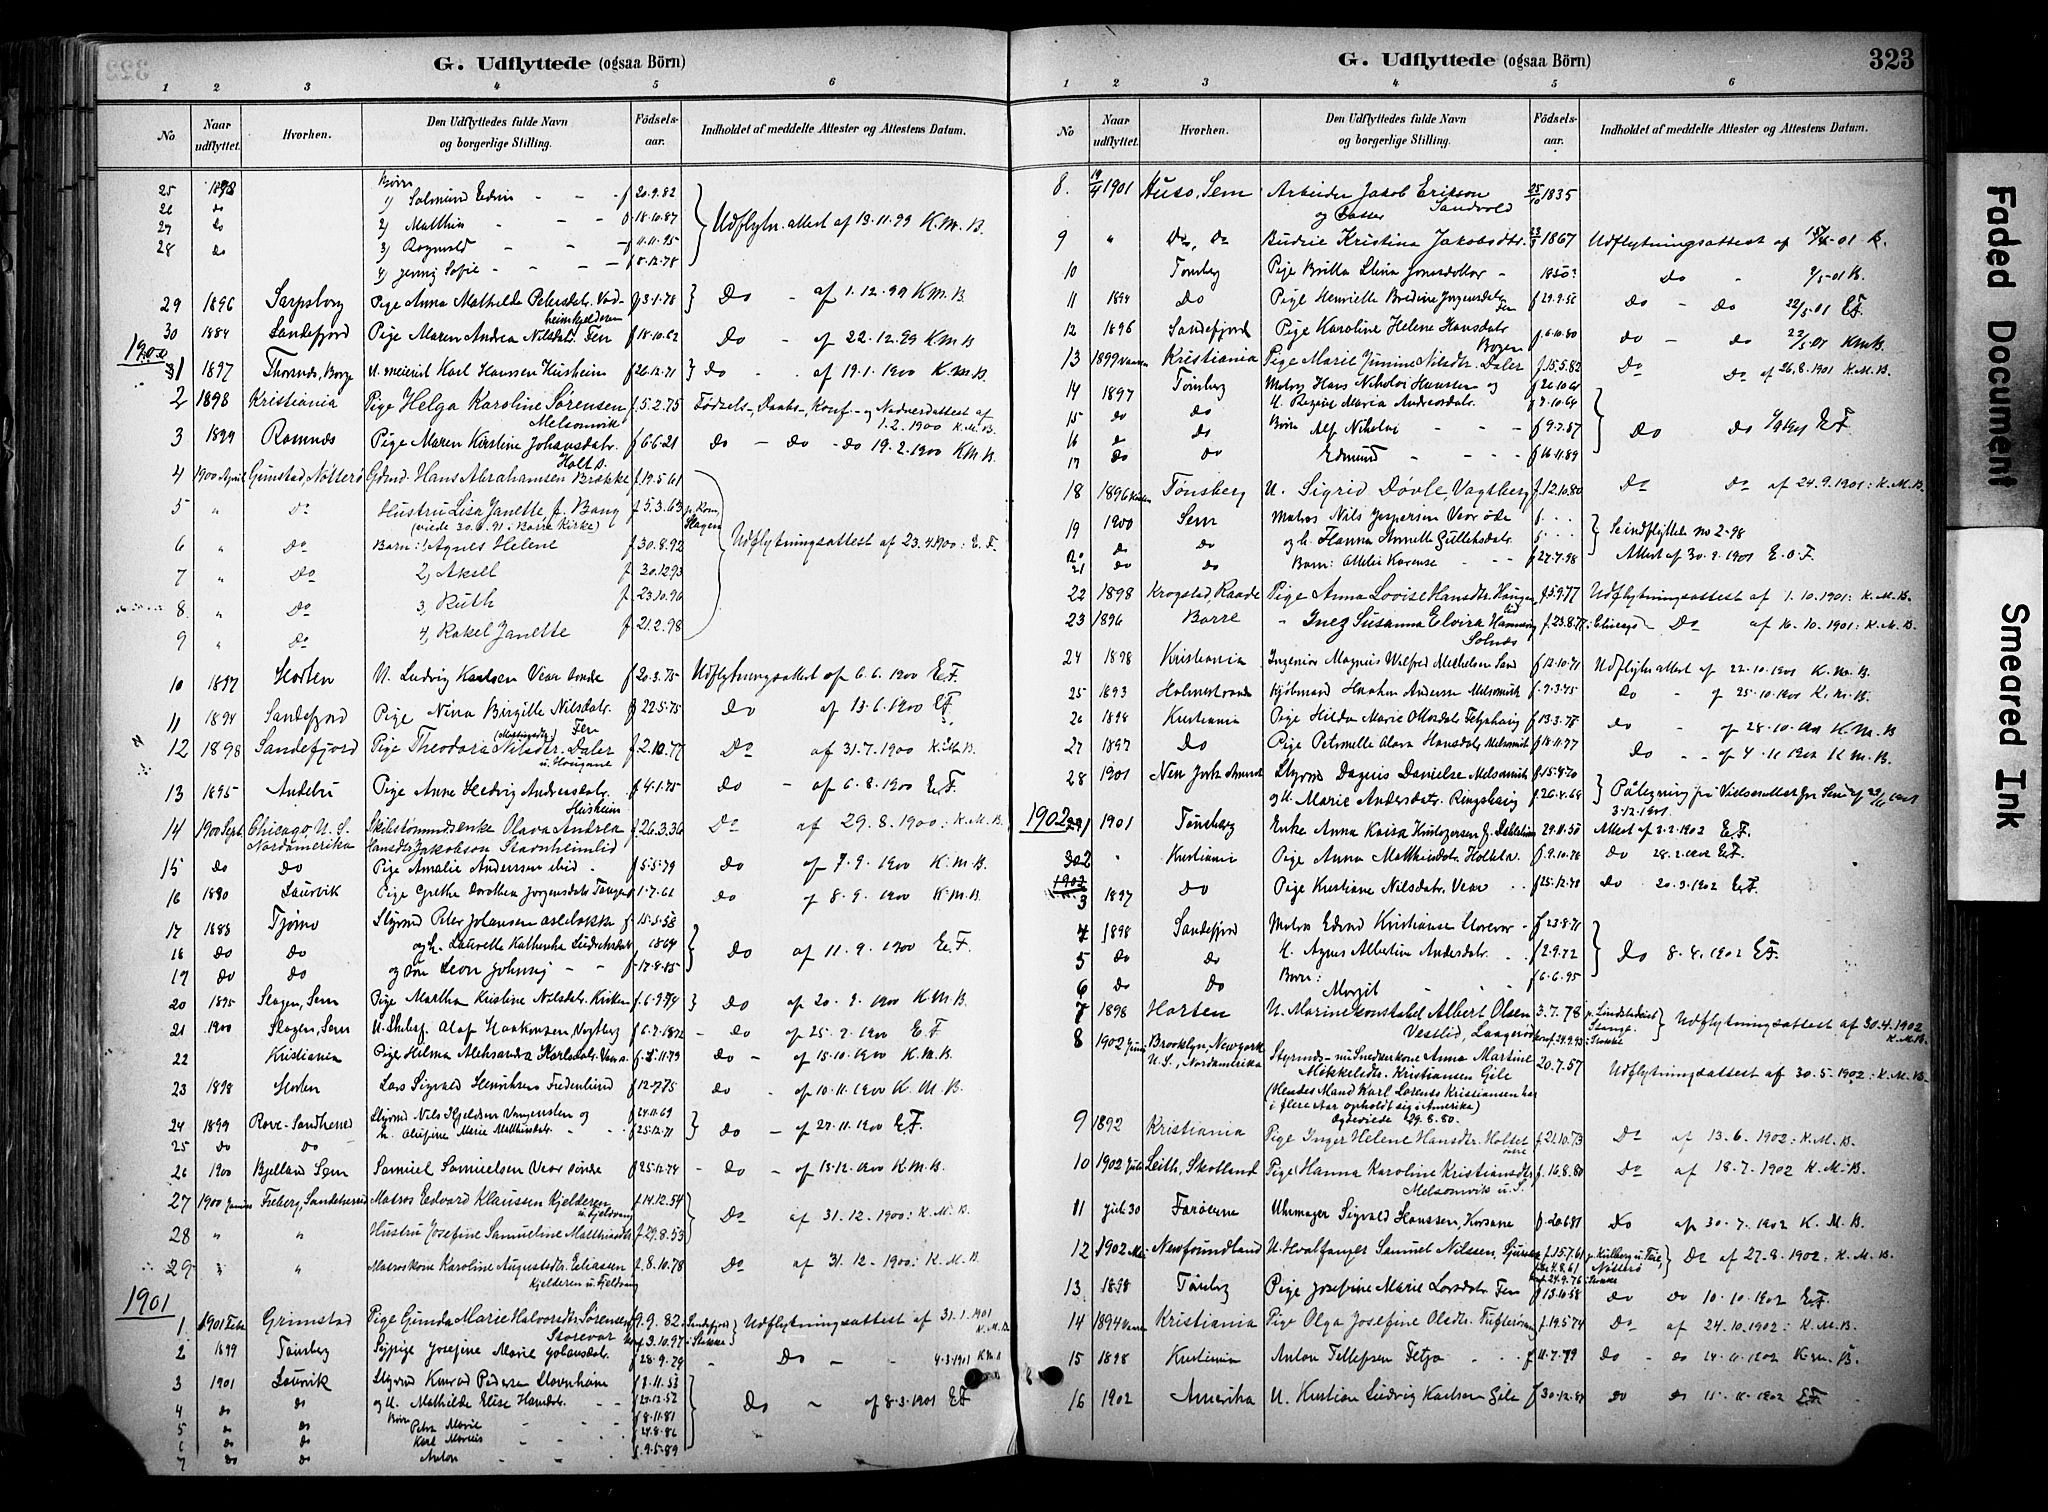 G. Udflyttede (ogsaa Börn)
1 2 3 4 5 6
No Naar udflyttet. Hvorhen. Den Udflyttedes fulde Navn og borgerlige Stilling. Födsels-aar. Indholdet af meddelte Attester og Attestens Datum.
25 1898 Børn 1) Salmund Edvin - - f 20.9.82
26 do 2) Matthia - - 18.10.87 Udflytn. attest af 13.11.99 K.M.B.
27 do 3) Ragnvald - - f 11.11.95
28 do 4) Jenny Sofie - - f 8.12.78
29 1896 Sarpsborg Pige Anna Mathilde Petersdatr. f 3.1.78 Do - af 1.12.99 K.M.B.
30 1884 Sandefjord Pige Maren Andrea Nilsdatr. Fen f 18.10.62 Do - af 22.12.99 K.M.B
1900
1 1897 U. meierist Karl Hansen Husheim f 26.12.71 do - af 19.1.1900 K.M.B.
2 1898 Kristiania Pige Helga Karoline Sørensen f. 5.2.75 Fødsels-, Daabs-, Konf- og Nadverdattest af
Melsomvik 1.2.1900 K.M.B.
3 1899 Ramnæs Pige Maren Kirstine Johansdatr. f 6.6.21 do - do - do 19.2.1900 K.M.B.
Holt s.
4 1900 April Grimstad, Nøtterø Gdmd. Hans Abrahamsen Brække f. 19.5.61
5 " Do Hustru Lisa Janette f. Bang f 5.3.63
(viede 30.6.91 i Borre Kirke) Slagen
6 " Do Barn: 1, Agnes Helene f 30.8.92 Udflytningsattest af 23.4.1900: E.F.
7 " Do 2, Aksel f 30.12.93
8 " Do 3, Ruth f 23.10.96
9 " Do 4, Rakel Janette f 21.2.98
10 1897 Horten U. Ludvig Karlsen Vear søndre f 20.3.75 Udflytningsattest af 6.6.1900 E.F.
11 1894 Sandefjord Pige Nina Birgitte Nilsdatr. f 22.5.75 Do af 13.6.1900 E.F.
Fen
12 1898 Sandefjord Pige Theodora Nilsdtr. Daler f 2.10.77 Do af 31.7.1900 K.M.B.
u. Hougane
13 1895 Andebu Pige Anne Hedvig Andersdatr. f 4.1.75 do - af 6.8.1900 E.F.
Husheim
14 1900 Sept. Chicago, U.S. Skibstømmds.enke Olava Andrea f. 26.3.36 Do af 29.8.1900: K.M.B.
Nordamerika Hansdtr. Jakobson Stavnheimlid
15 do do Pige Amalie Anderssen ibid f 5.5.79 do af 7.9.1900 K.M.B.
16 1890 Laurvik Pige Grethe Dorothea Jørgensdatr. Tangen f 1.7.66 do af 8.9.1900 K.M.B.
17 1883 Tjømø Styrmd Peter Johansen f 15.5.58
18 do do og h. Laurette Kathinka 1864 do af 11.9.1900 E.F.
19 do do og Søn Leon Johnny - - f 17.8.85
20 1895 Slagen, Sem Pige Martha Kristine Nilsdatr. f. 6.9.74 Do af 20.9.1900 K.M.B.
21 1900 Slagen, Sem U. Skibsf. Olaf Haakonsen, Vagtberg f 6.7.1872 - do af 25.9.1900 E.F
22 Kristiania Pige Hilma Aleksandra Karlsdatr. Vear f. 5.11.79 do - af 15.10.1900 K.M.B.
23 1898 Horten Lars Sigvald Henriksen Fredenlund f 12.7.75 do - af 10.11.1900 K.M.B.
24 1899 Rove-Sandherred Styrmd Nils Kjeldsen Vengensten og f 24.11.69 do - af 27.11.1900 E.F.
25 do do h. Olufine Marie Matthiasdatr. f 25.12.71
26 1900 Bjelland Sem Samuel Samuelsen Vear søndre f 25.12.74 - do - af 13.12.1900 K.M.B.
27 1900 Freberg, Sandeherred Matros Edvard Klausen Kjelderen f. 14.12.54
u. Fjeldvang Do af 31.12.1900: K.M.B.
28 " " Hustru Josefine Samueline Matthiasdtr. f. 29.8.53
29 " " Matroskone Karoline Augustedtr. Eliasen f. 8.10.78 Do af 31.12.1900: K.M.B.
Kjelderen u. Fjeldvang
1901
1 1901 Febr. Grimstad Pige Gunda Marie Halvorsdtr. Sørensen f 9.9.82 Udflytningsattest af 31.1.1901 K.M.B.
Storevar 3.10.97 i Stokke
2 1899 Tønsberg Sypige Josefine Marie Johansdatr. f 28.9.79 - Do - - 4.3.1901 K.M.B
3 1901 Laurvik Styrmd Konrad Pedersen Stavnheim f 8.11.53
4 do do og U. Mathilde Elise Hansdtr. - - f 23.12.52 Do - af 8.3.1901 E.F
5 do do Børn Petra Marie f 8.11.81
6 do do Karl Marius f 24.8.86
7 do do Anton f. 9.5.89
G. Udflyttede (ogsaa Börn) 323
1 2 3 4 5 6
No Naar udflyttet. Hvorhen. Den Udflyttedes fulde Navn og borgerlige Stilling. Födsels-aar. Indholdet af meddelte Attester og Attestens Datum.
8. 19/4 1901 Huso, Sem Arbeider Jakob Erikson 25/10 1835
og Datter Sandvold
9 " Do, Do Budeie Kristina Jakobsdtr. 1867 Udflytningsattest af 15/4-01 K.
10 Tønsberg Pige Britta Stina Jonasdotter - 1850? Do - 2/5-01 B.
11 1894 Do Pige Henriette Bredine Jørgensdatr. f 29.9.56 Do - Do 22/5.01 E.F.
Fen
12 1896 Sandefjord Pige Karoline Helene Hansdatr. f. 6.10.80 do - do 22/5.01 K.M.B.
Bogen
13 1899 Kristiania Pige Marie Junine Nilsdtr. Daler f. 15.5.82 Do Do af 26.8.1901 K.M.B.
14 1897 Tønsberg Matros Hans Nikolai Hansen og f 26.10.61
15 do do h. Regine Maria Andreasdatr. f 9.10.64
16 do do Børn Alf Nikolai - - - f 9.7.87 Do Do E.F.
17 do do Edmund - - - f 16.11.89
18 1896 Tønsberg U. Sigrid Døvle, Vagtberg f. 12.10.80 Do Do af 24.9.1901: K.M.B.
19 1900 Sem Matros Nils Jespersen Vear øde f. . . . Se indflyttede no 2-98
20 do do og h. Hanna Annette Gulliksdatr. f. . . .
21 do do Barn: Otteli Karense - - f 27.7.98 Attest af 30.9.1901 E.O.F.
22 1898 Krogstad, Raade Pige Anna Lovise Hansdtr. Haugen f. 5.9.77 Udflytningsattest af 1.10.1901: K.M.B.
23 1896 Borre " Inez Susanna Elvira Hannevig f. 23.8.77 i Chicago - Do af 16.10.1901: K.M.B.
Solnæs
24 1898 Kristiania Ingeniør Magnus Wilfred Michelsen Sand f 12.10.71 Udflytn attest af 22.10.1901 K.M.B.
25 1893 Holmestrand Kjøbmand Haakon Andersen Melsomvik f. 9.3.45 do - af 25.10.1901 K.M.B.
26 1898 Kristiania Pige Hilda Marie Olsdatr. f 13.3.78 do - af 28.10.1901 K.M.B
27 1897 Do Pige Petronelle Olava Hansdatr. Melsomvik f 18.11.77 Do - af 4.11.1901 K.M.B.
28 1901 New York Styrmd Dagnis Danielsen Melsomvik f. 15.4.70 Paategning paa Vielsesattest fra Sem
og U. Marie Andersdatr. Ringshaug f. 26.4.64 3.12.1901.
1902
1 1901 Tønsberg Enke Anna Kaisa f 29.11.50 Attest af 2.2.1902 E.F.
2 " Kristiania Pige Anna Matthiasdatr. f. 9.10.78 do 28.2.1902 E.F.
1902
3 1897 Do Pige Kristiane Nilsdatr. Vear f 25.12.78 do - 20.3.1902 E.F.
4 1898 Sandefjord Matros Edvard Kristiansen Storevar - f 23.8.71
5 do do U. Agnes Albertine Andersdatr. f 2.9.72 Do 8.4.1902 E.F.
6 do Do Barn: Margit f 6.6.95
7 1898 Horten U. Marinekonstabel Albert Olsen 3.7.78 Udflytningsattest af 30.4.1902
Vestlid, Laagerød Stange K.M.B.
8 1902 Juni Brooklyn, Newyork Styrmds- nu Snedkerkone Anna Martine 20.7.57 Udflytningsattest af 30.5.1902: K.M.B.
U.S., Nordamerika Mikkelsdtr. Kristiansen Gile
(Hendes Mand Karl Lorents Kristiansen har
i flere Aar opholdt sig i Amerika)
Egteviede 29.8.80.
9 1892 Kristiania Pige Inger Helene Hansdtr. Holtet f. 21.10.73 Do af 13.6.1902: K.M.B.
østre
10 1902 Juli Leith, Skotland Pige Hanna Karoline Kristiansdtr. f. 16.8.80 Do af 18.7.1902 K.M.B.
Melsomvik u. S.
11 juli 30 Færøerne Uhrmager Sigvald Hanssen, Korsane f. 20.6.81 Do af 30.7.1902 K.M.B.
12 1902 Newfoundland U. Hvalfanger Samuel Nilsen, f. 15.7.61 Do af 27.8.1902: K.M.B.
Nøtterø
13 1898 Tønsberg Pige Josefine Marie Larsdatr. Fen f 13.10.58 do do 10.10.1902 E.F.
14 1894 Kristiania Pige Olga Josefine Olsdtr. Tufterøen f. 19.5.74 Do af 24.10.1902: K.M.B.
15 1898 Kristiania Anton Tellefsen Fetja - - f 11.7.79 do - do 14.11.1902 K.M.B.
16 1902 Amerika U. Kristian Ludvig Karlsen Gile f 30.12.84 do do 15.11.1902 E.F
Faded Document
Smeared Ink